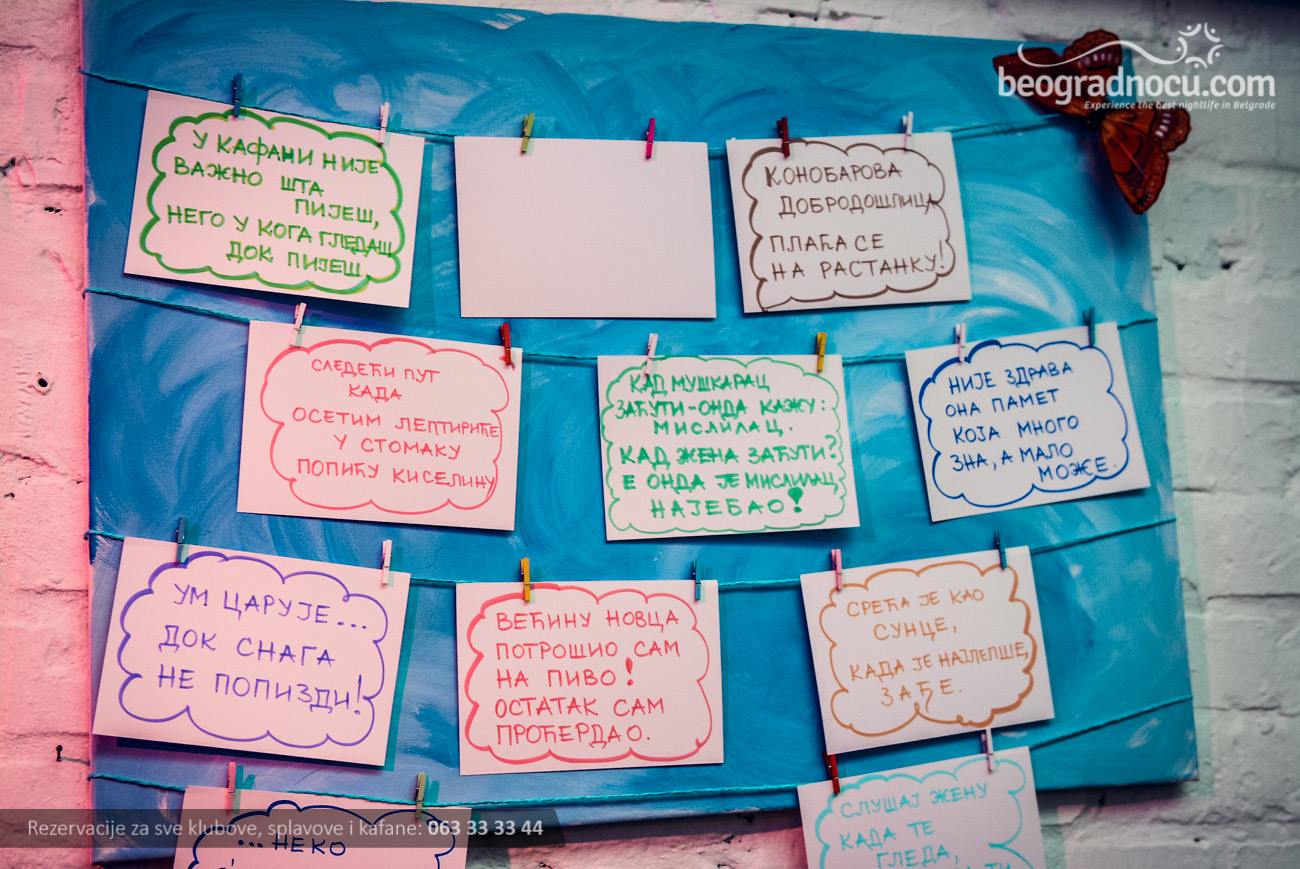 beogradnocu.com
Experience the best nightlife in Belgrade
У КАФАНИ НИЈЕ
ВАЖНО ШТА
ПИЈЕШ,
НЕГО У КОГА ГЛЕДАШ
ДОК ПИЈЕШ
КОНОБАРОВА
ДОБРОДОШЛИЦА
ПЛАЋА СЕ
НА РАСТАНКУ!
СЛЕДЕЋИ ПУТ
КАДА
ОСЕТИМ ЛЕПТИРИЋЕ
У СТОМАКУ
ПОПИЋУ КИСЕЛИНУ
КАД МУШКАРАЦ
ЗАЋУТИ-ОНДА КАЖУ:
МИСЛИЛАЦ.
КАД ЖЕНА ЗАЋУТИ?
Е ОНДА ЈЕ МИСЛИЛАЦ
НАЈЕБАО!
НИЈЕ ЗДРАВА
ОНА ПАМЕТ
КОЈА МНОГО
ЗНА, А МАЛО
МОЖЕ.
УМ ЦАРУЈЕ...
ДОК СНАГА
НЕ ПОПИЗДИ!
ВЕЋИНУ НОВЦА
ПОТРОШИО САМ
НА ПИВО!
ОСТАТАК САМ
ПРОЋЕРДАО.
СРЕЋА ЈЕ КАО
СУНЦЕ,
КАДА ЈЕ НАЈЛЕПШЕ,
ЗАЂЕ.
...НЕКО
СЛУШАЈ ЖЕНУ
КАДА ТЕ
ГЛЕДА,
Rezervacije za sve klubove, splavove i kafane: 063 33 33 44